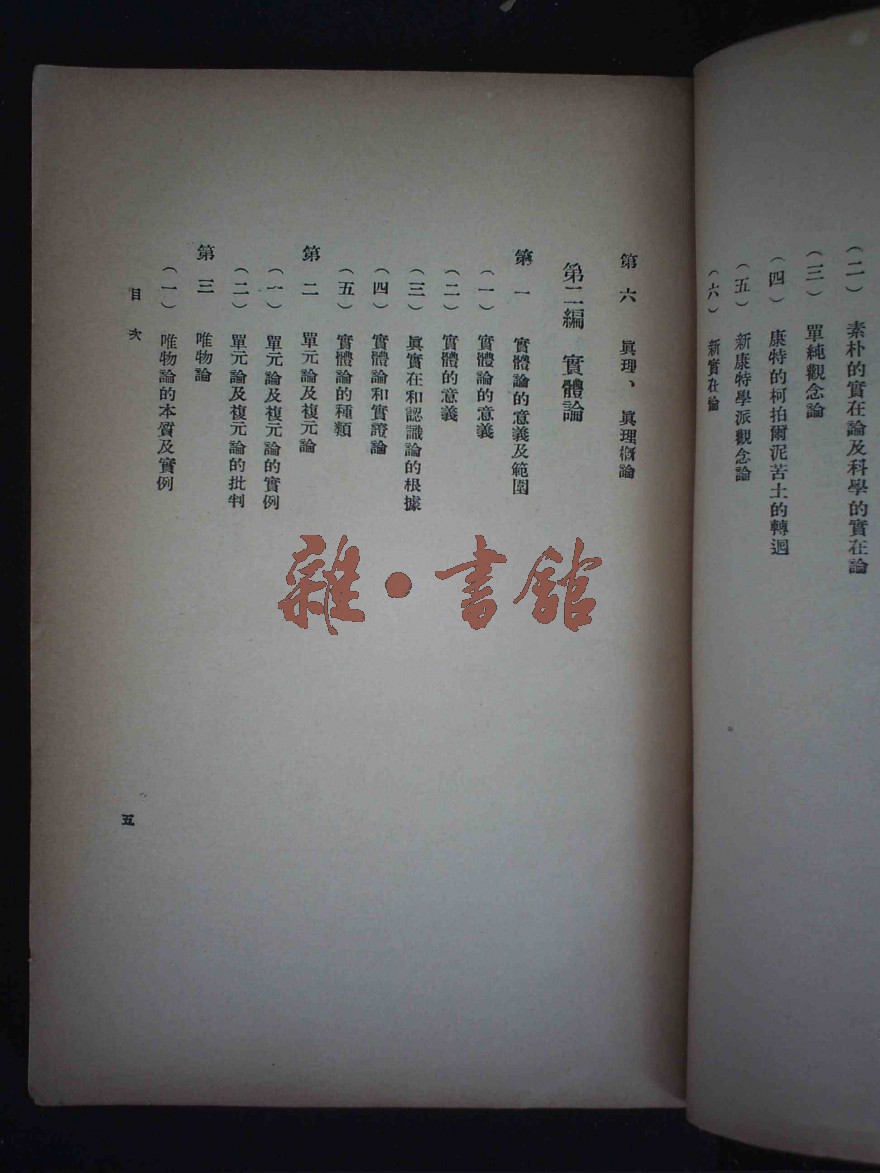 （二）　素朴的實在論及科學的實在論
（三）　單純觀念論
（四）　康特的柯拍爾泥苦士的轉迴
（五）　新康特學派觀念論
（六）　新實在論
第六　眞理、眞理概論
第二編　實體論
第一　實體論的意義及範圍
（一）　實體論的意義
（二）　實體的意義
（三）　眞實在和認識論的根據
（四）　實體論和實證論
（五）　實體論的種類
第二　單元論及複元論
（一）　單元論及複元論的實例
（二）　單元論及複元論的批判
第三　唯物論
（一）　唯物論的本質及實例
目次
五
雜·書館